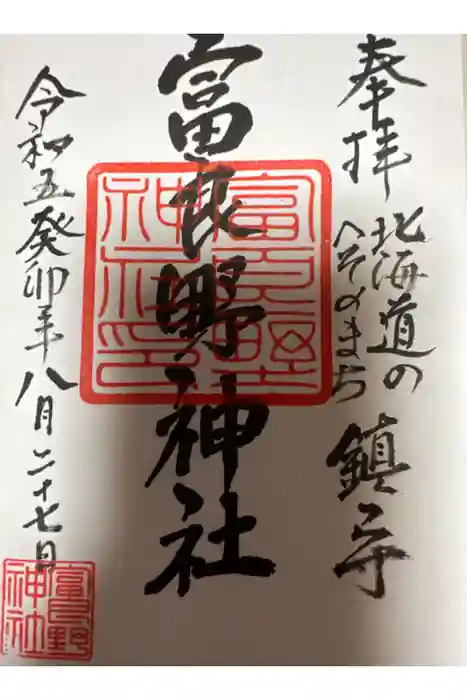 奉拝
北海道の
へそのまち
鎮守
富良野神社
富良野
神社印
令和五癸卯年八月二十七日
富良野
神社